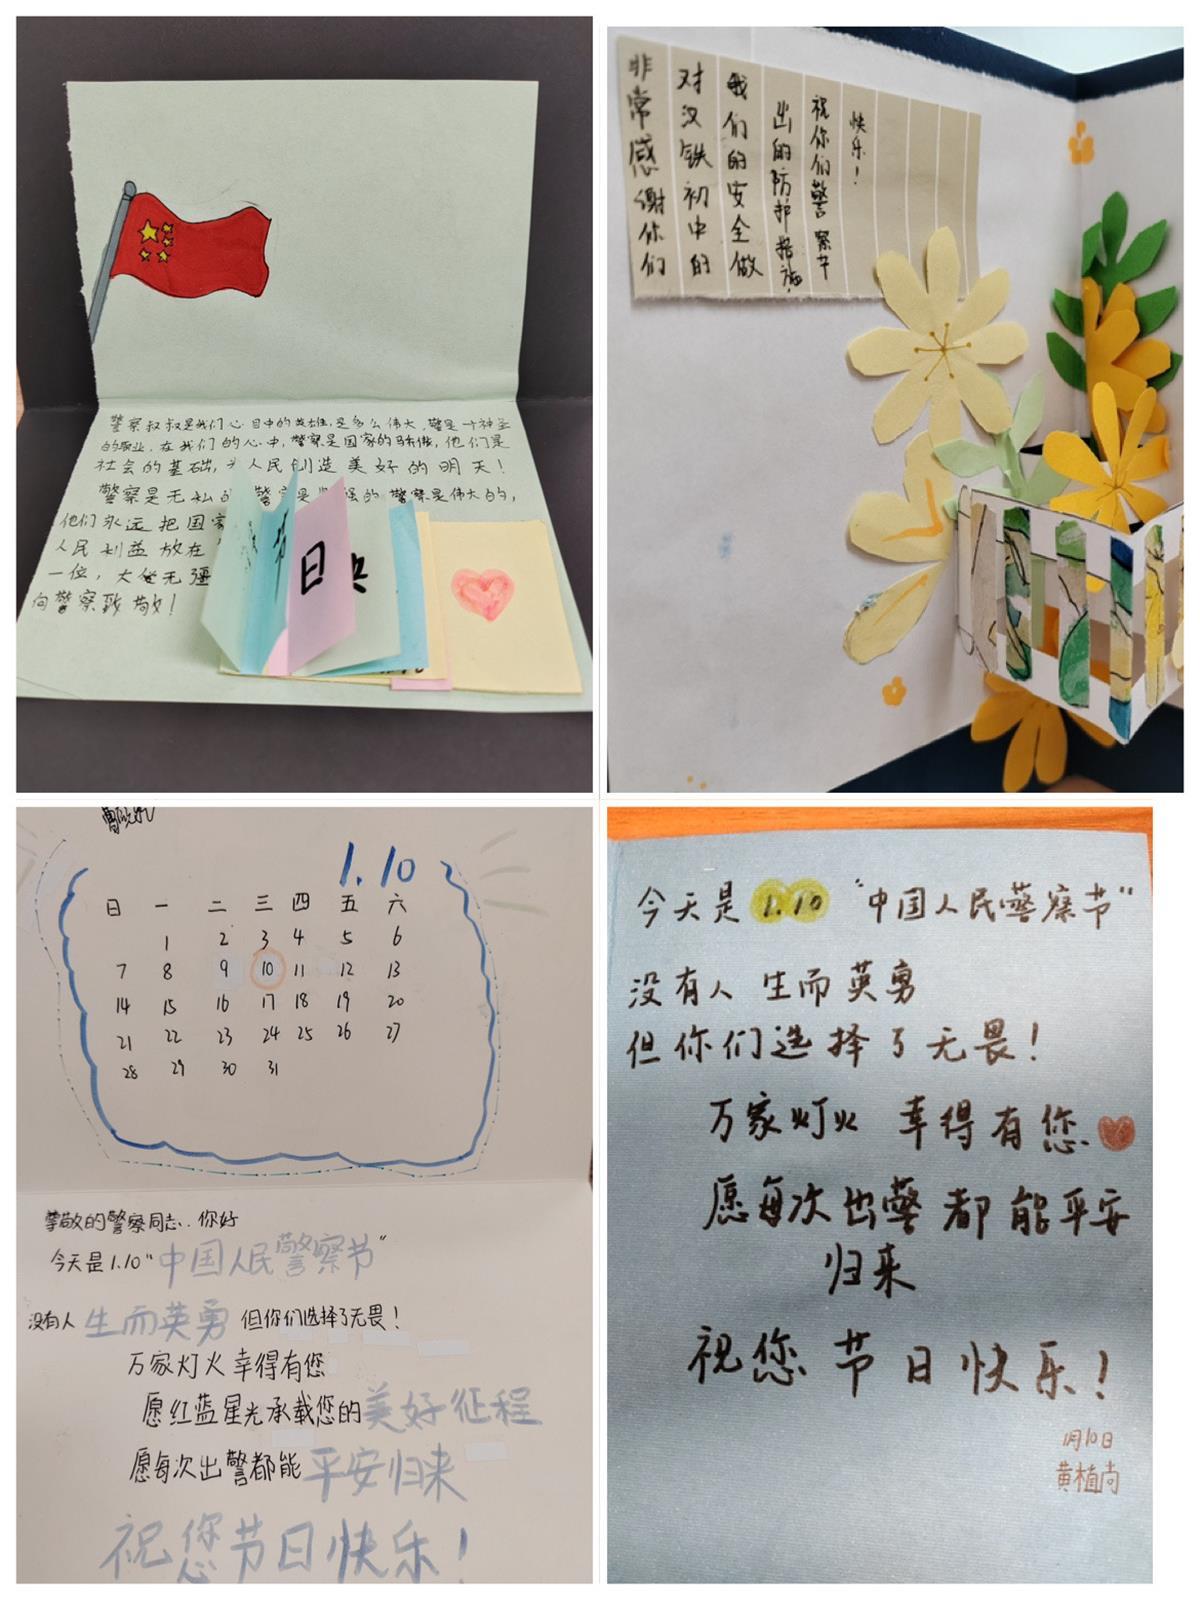 警察叔叔是我们心目中的英雄,是多么伟大,警是一个神圣
的职业,在我们的心中,警察是国家的骄傲,他们是
社会的基础,为人民创造美好的明天!
警察是无私的 警察是坚强的 警察是伟大的,
他们永远把国家
人民利益放在
一位,大爱无疆
向警察致敬!
节
日
非常感谢你们
对汉铁初中的
我们的安全做
出的防护措施,
祝你们警察节
快乐!
1.10
日 一 二 三 四 五 六
1 2 3 4 5 6
7 8 9 10 11 12 13
14 15 16 17 18 19 20
21 22 23 24 25 26 27
28 29 30 31
尊敬的警察同志:你好
今天是1.10“中国人民警察节”
没有人生而英勇 但你们选择了无畏!
万家灯火幸得有您
愿红蓝星光承载您的美好征程
愿每次出警都能平安归来
祝您节日快乐!
今天是1.10“中国人民警察节”
没有人生而英勇
但你们选择了无畏!
万家灯火 幸得有您
愿每次出警都能平安
归来
祝您节日快乐!
1月10日
黄植尚